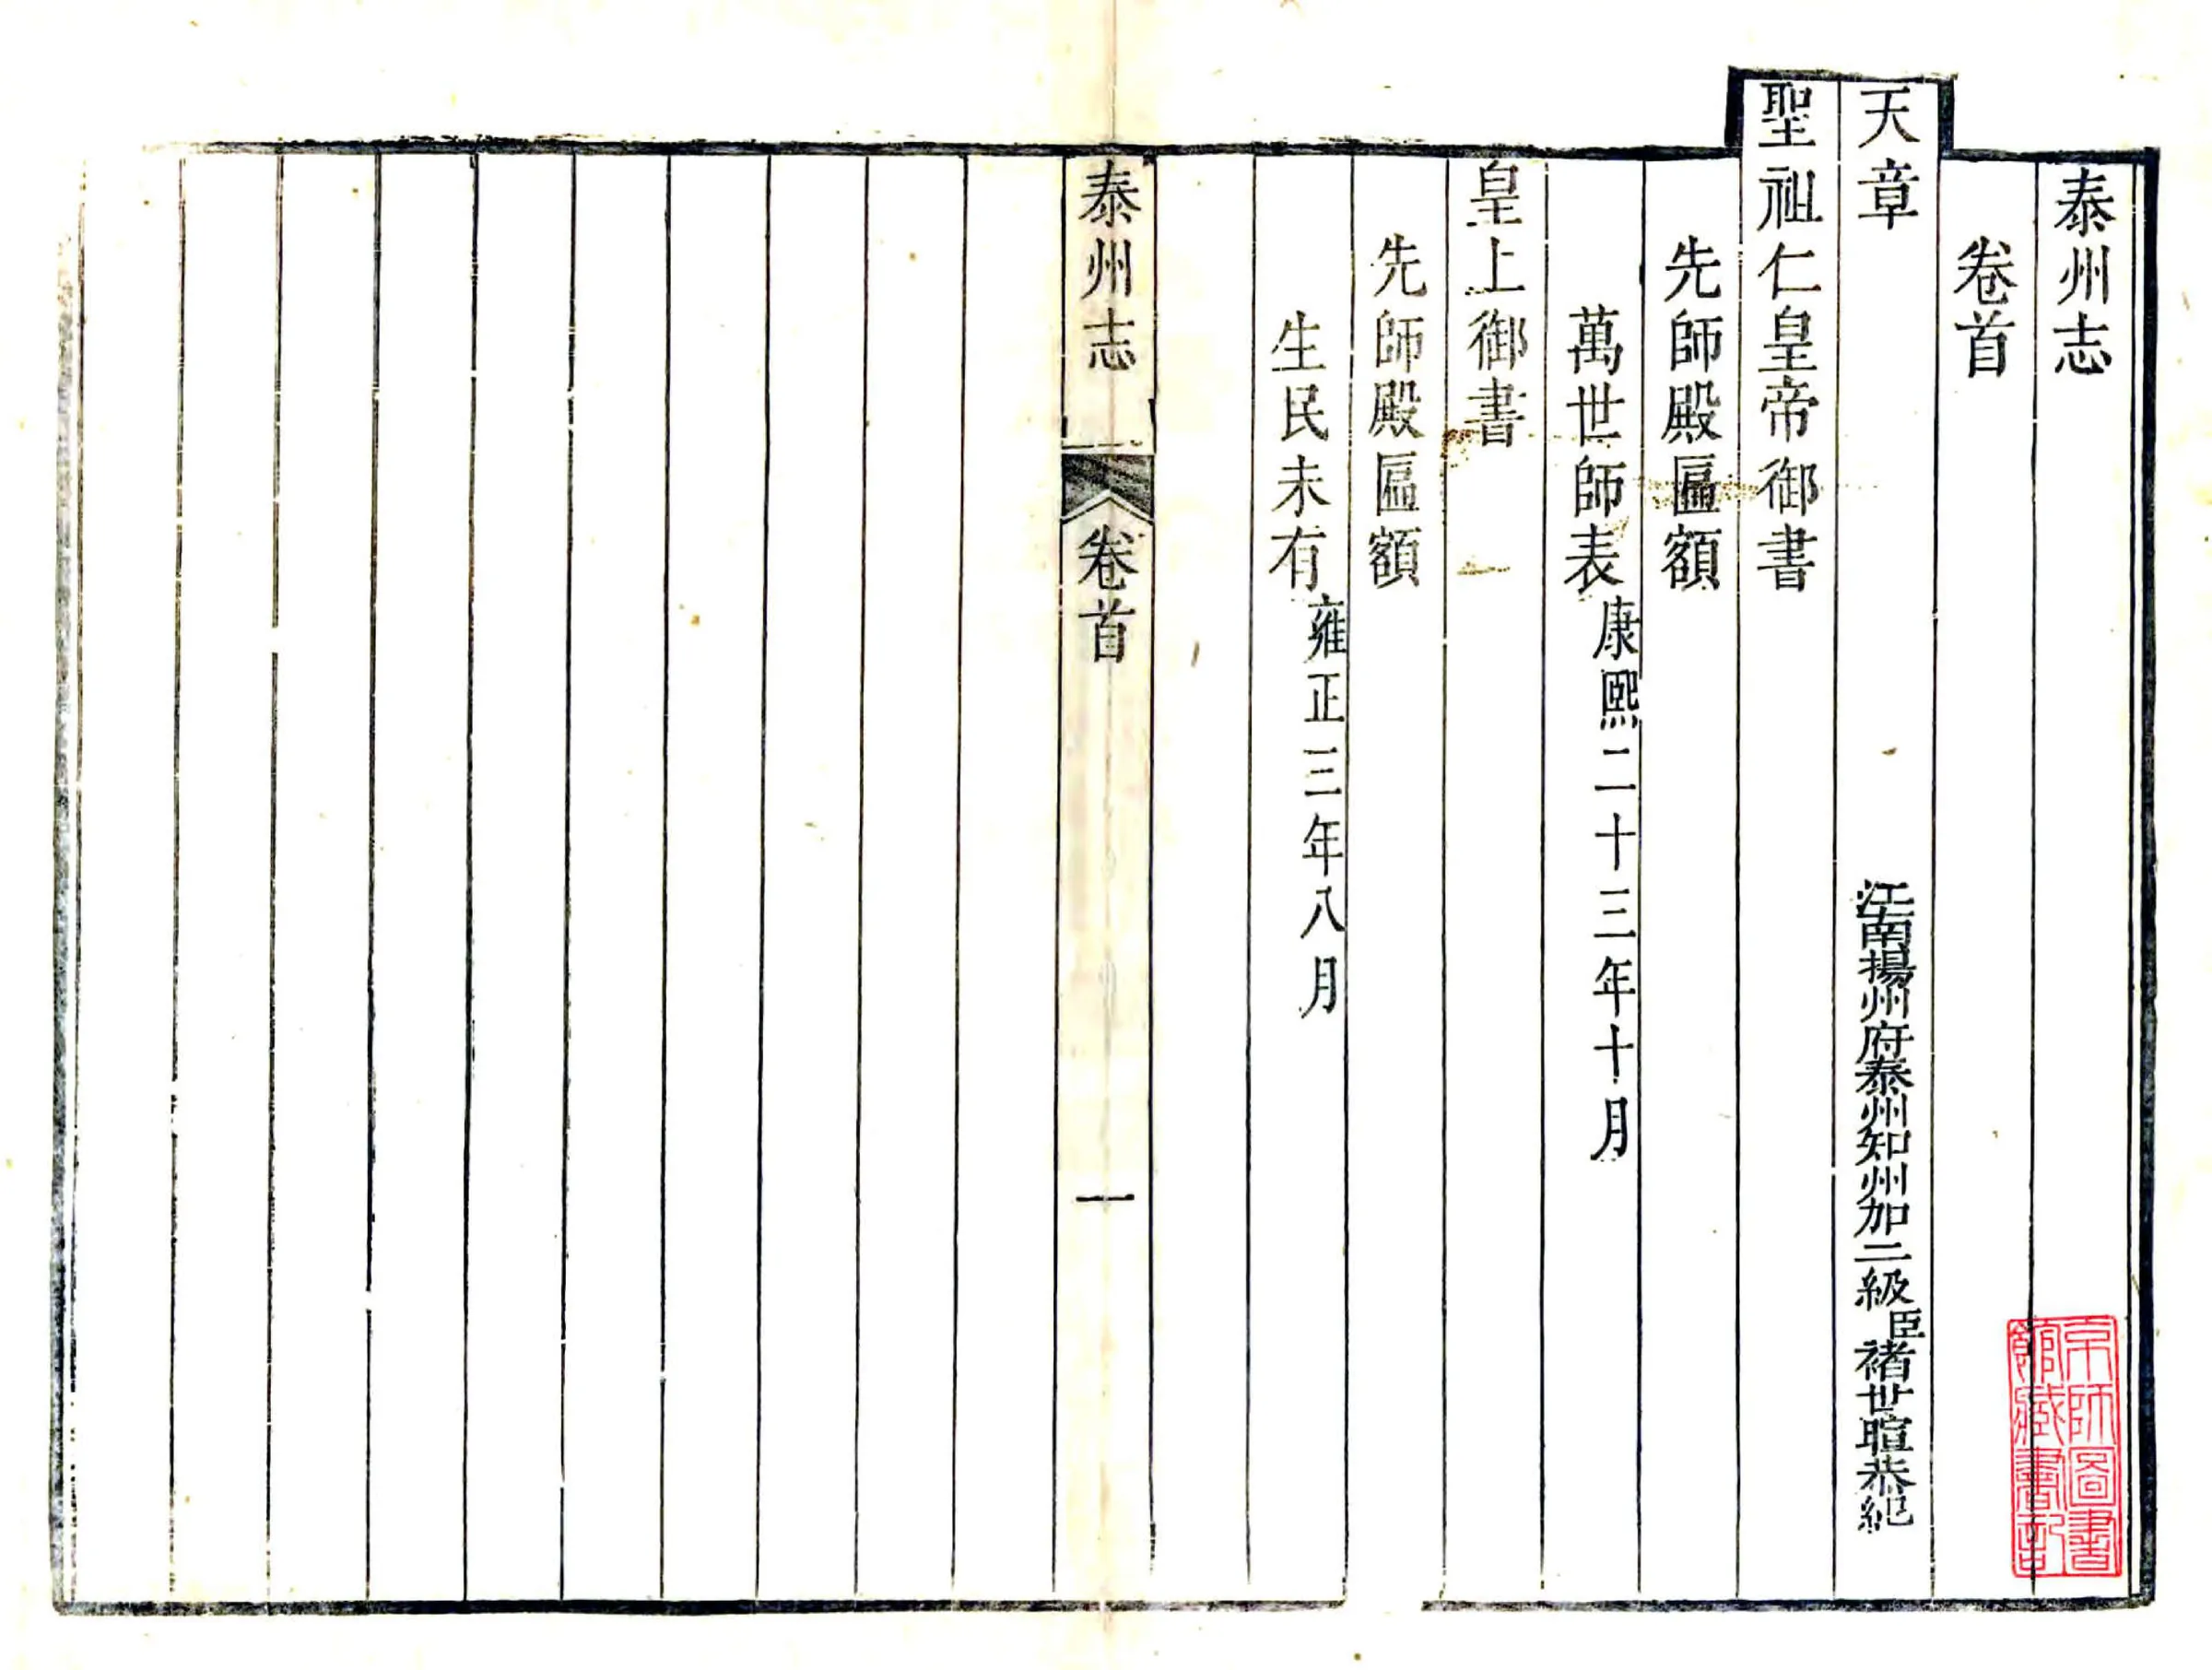 泰州志
卷首
天章 江南揚州府泰州知州加二級臣褚世暄恭紀
聖祖仁皇帝御書
先師殿匾額
萬世師表康熙二十三年十月
皇上御書
先師殿匾額
生民未有雍正三年八月
泰州志 卷首 一
京師圖書
館藏書記